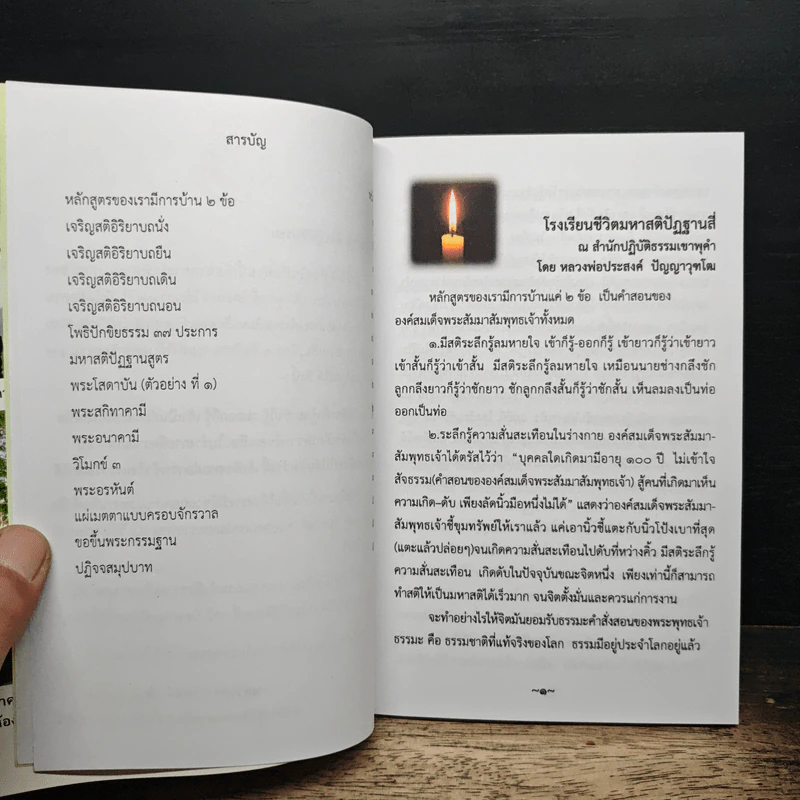 สารบัญ
หลักสูตรของเรามีการบ้าน ๒ ข้อ
เจริญสติอิริยาบถนั่ง
เจริญสติอิริยาบถยืน
เจริญสติอิริยาบถเดิน
เจริญสติอิริยาบถนอน
โพธิปักขิยธรรม ๓๗ ประการ
มหาสติปัฏฐานสูตร
พระโสดาบัน (ตัวอย่าง ที่ ๑)
พระสกิทาคามี
พระอนาคามี
วิโมกข์ ๓
พระอรหันต์
แผ่เมตตาแบบครอบจักรวาล
ขอขึ้นพระกรรมฐาน
ปฏิจจสมุปบาท
โรงเรียนชีวิตมหาสติปัฏฐานสี่
ณ สำนักปฏิบัติธรรมเขาพุคำ
โดย หลวงพ่อประสงค์ ปัญญาวุฑโฒ
หลักสูตรของเรามีการบ้านแค่ ๒ ข้อ เป็นคำสอนของ
องค์สมเด็จพระสัมมาสัมพุทธเจ้าทั้งหมด
๑.มีสติระลึกรู้ลมหายใจ เข้าก็รู้-ออกก็รู้ เข้ายาวก็รู้ว่าเข้ายาว
เข้าสั้นก็รู้ว่าเข้าสั้น มีสติระลึกรู้ลมหายใจ เหมือนนายช่างกลึงชัก
ลูกกลึงยาวก็รู้ว่าชักยาว ชักลูกกลึงสั้นก็รู้ว่าชักสั้น เห็นลมลงเป็นท่อ
ออกเป็นท่อ
๒.ระลึกรู้ความสั่นสะเทือนในร่างกาย องค์สมเด็จพระสัมมา-
สัมพุทธเจ้าได้ตรัสไว้ว่า "บุคคลใดเกิดมามีอายุ ๑๐๐ ปี ไม่เข้าใจ
สัจธรรม(คำสอนขององค์สมเด็จพระสัมมาสัมพุทธเจ้า) สู้คนที่เกิดมาเห็น
ความเกิด-ดับ เพียงลัดนิ้วมือหนึ่งไม่ได้" แสดงว่าองค์สมเด็จพระสัมมา-
สัมพุทธเจ้าชี้ขุมทรัพย์ให้เราแล้ว แค่เอานิ้วชี้แตะกับนิ้วโป้งเบาที่สุด
(แตะแล้วปล่อยๆ)จนเกิดความสั่นสะเทือนไปดับที่หว่างคิ้ว มีสติระลึกรู้
ความสั่นสะเทือน เกิดดับในปัจจุบันขณะจิตหนึ่ง เพียงเท่านี้ก็สามารถ
ทำสติให้เป็นมหาสติได้เร็วมาก จนจิตตั้งมั่นและควรแก่การงาน
จะทำอย่างไรให้จิตมันยอมรับธรรมะคำสั่งสอนของพระพุทธเจ้า
ธรรมะ คือ ธรรมชาติที่แท้จริงของโลก ธรรมมีอยู่ประจำโลกอยู่แล้ว
~๑~